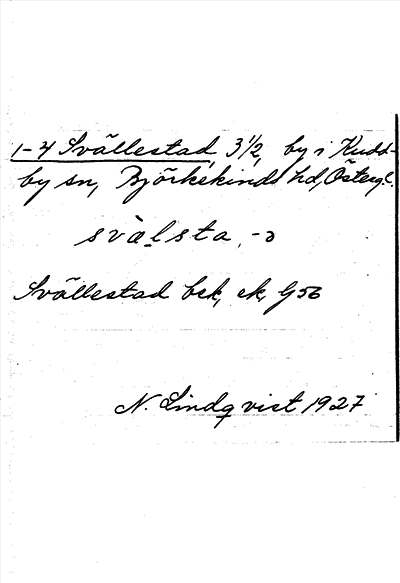 1-4 Svällestad, 3 1/2, by i Kudd-
by sn, Björkekinds hd, Östergl.
svä̀lsta, -ɔ
Svällestad bek, ek, G56
N. Lindqvist 1927